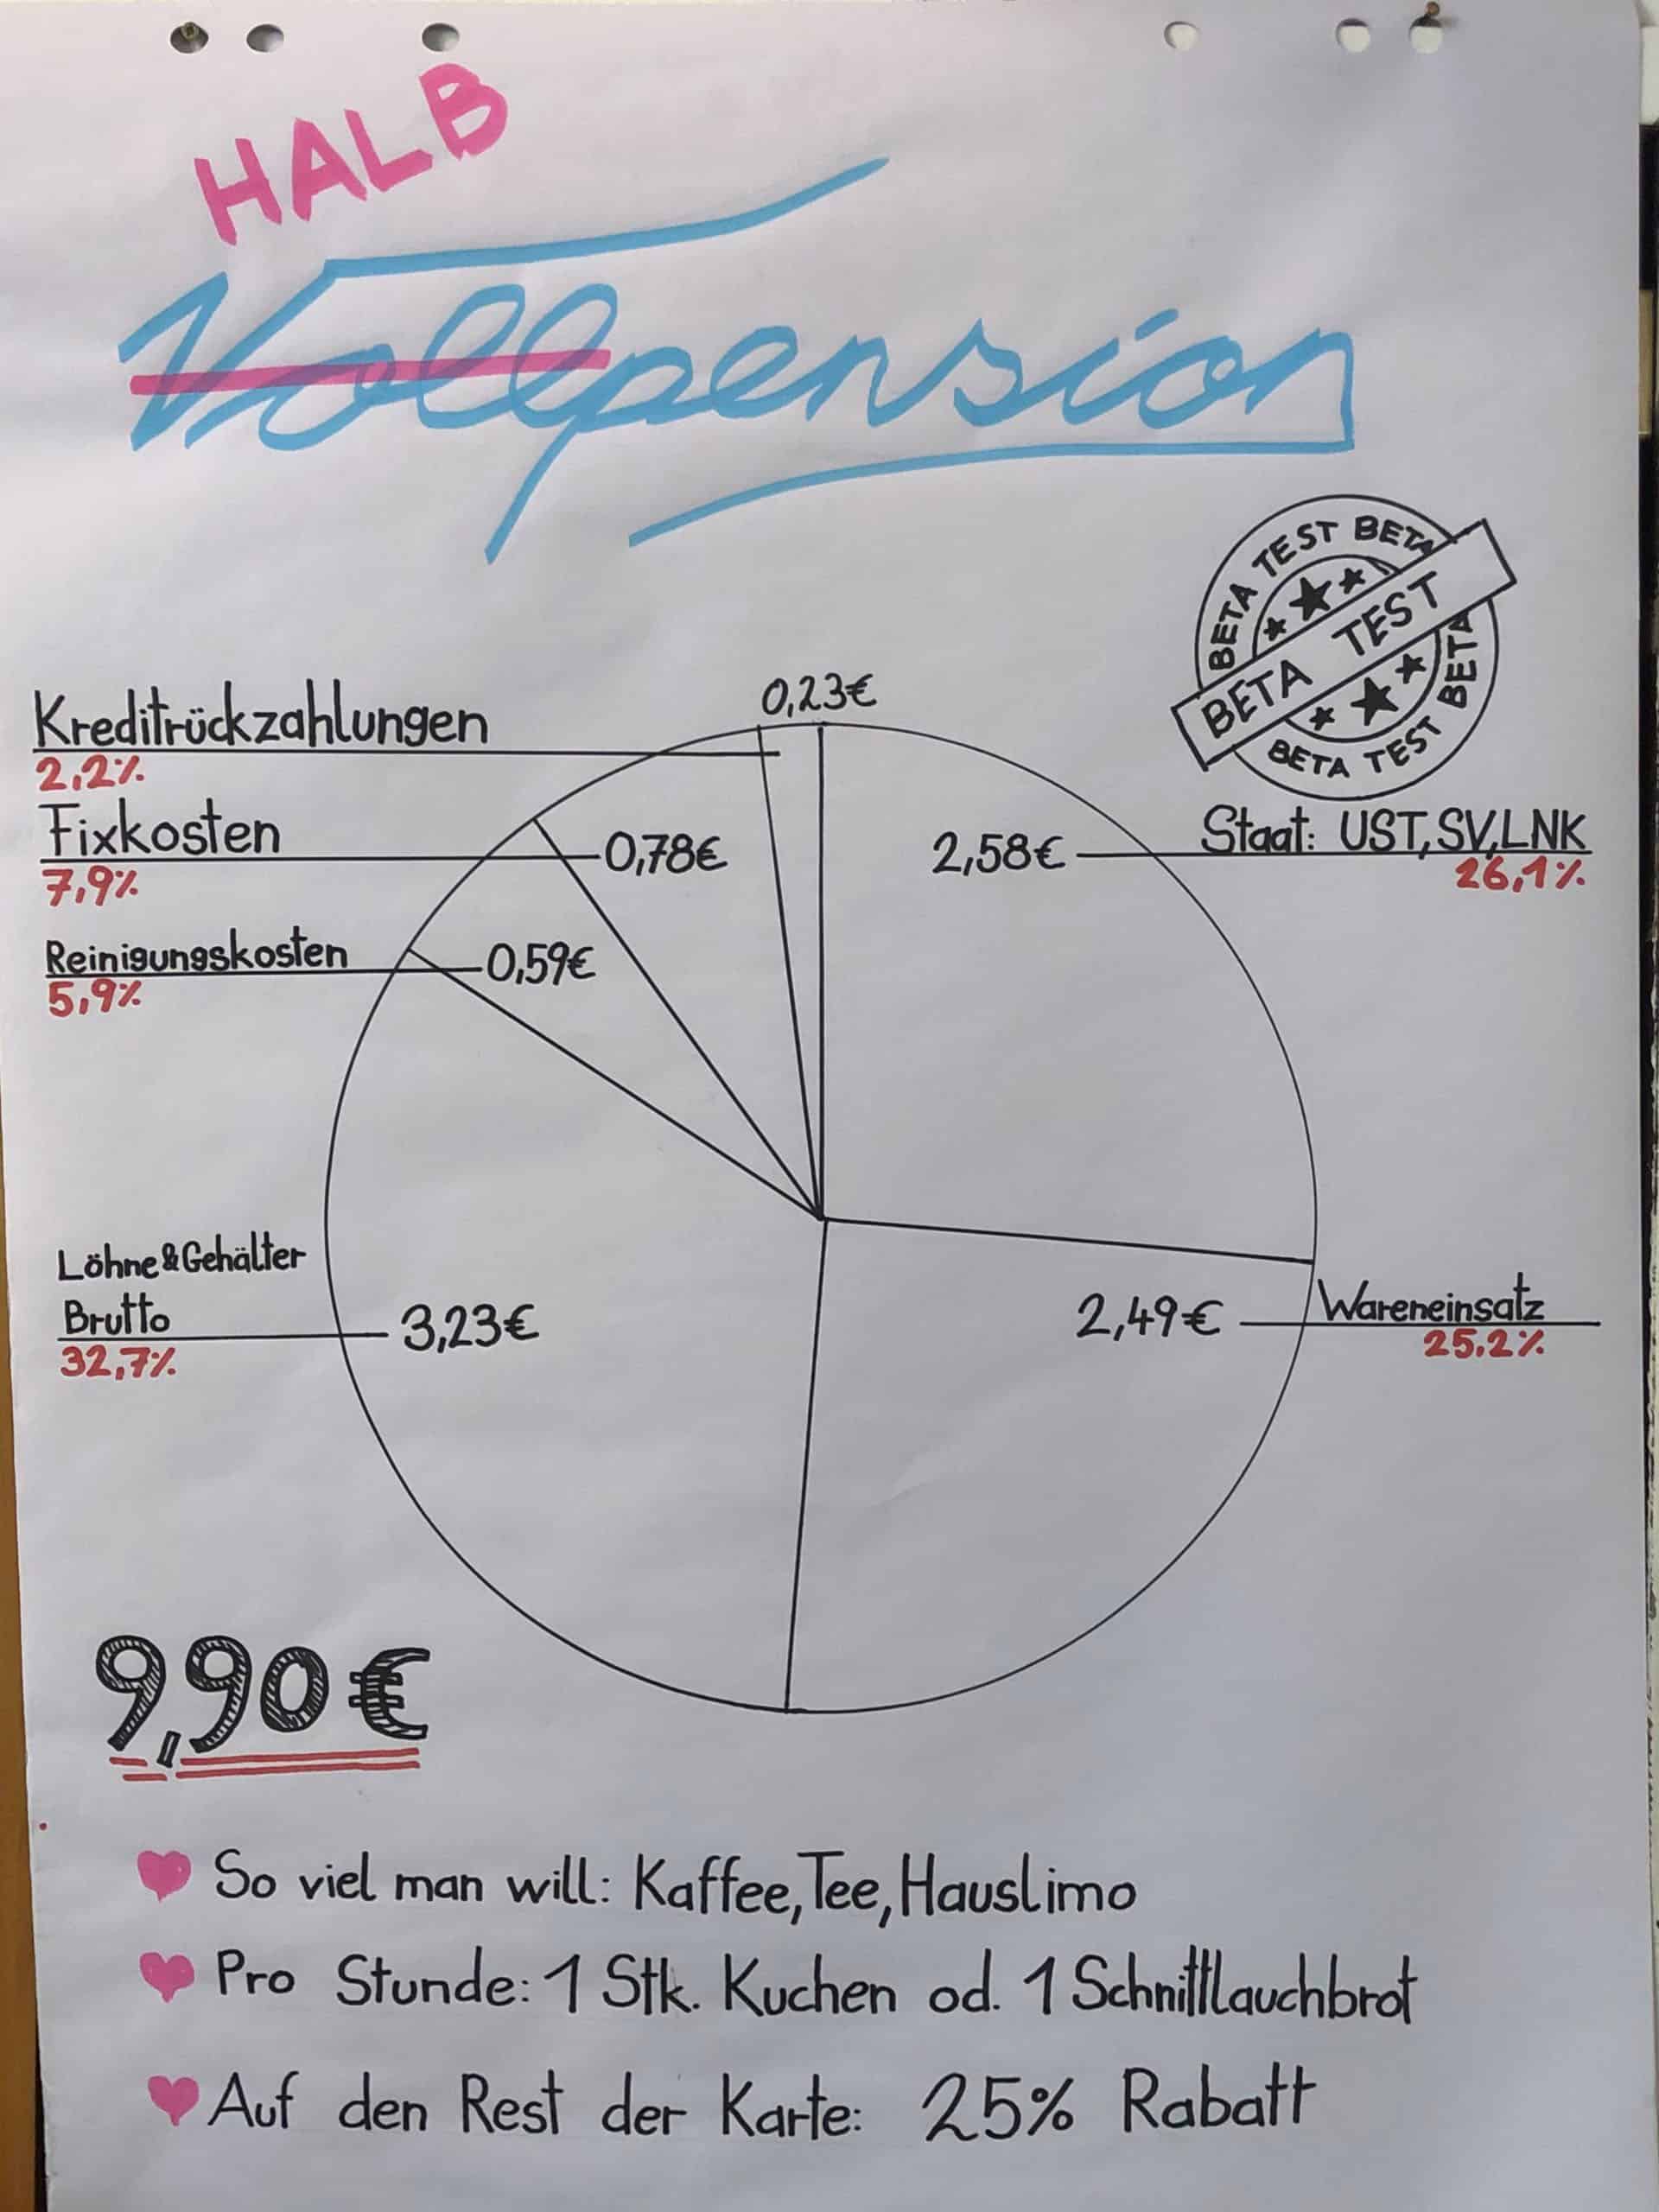 HALB
Vollpension
BETA TEST BETA
BETA TEST
BETA TEST BETA
0,23€
Kreditrückzahlungen
2,2%
Fixkosten
7,9%
0,78€
2,58€
Staat: UST,SV,LNK
26,1%
Reinigungskosten
5,9%
0,59€
Löhne&Gehälter
Brutto
32,7%
3,23€
2,49€
Wareneinsatz
25,2%
9,90€
So viel man will: Kaffee,Tee,Hauslimo
Pro Stunde: 1 Stk. Kuchen od. 1 Schnittlauchbrot
Auf den Rest der Karte: 25% Rabatt